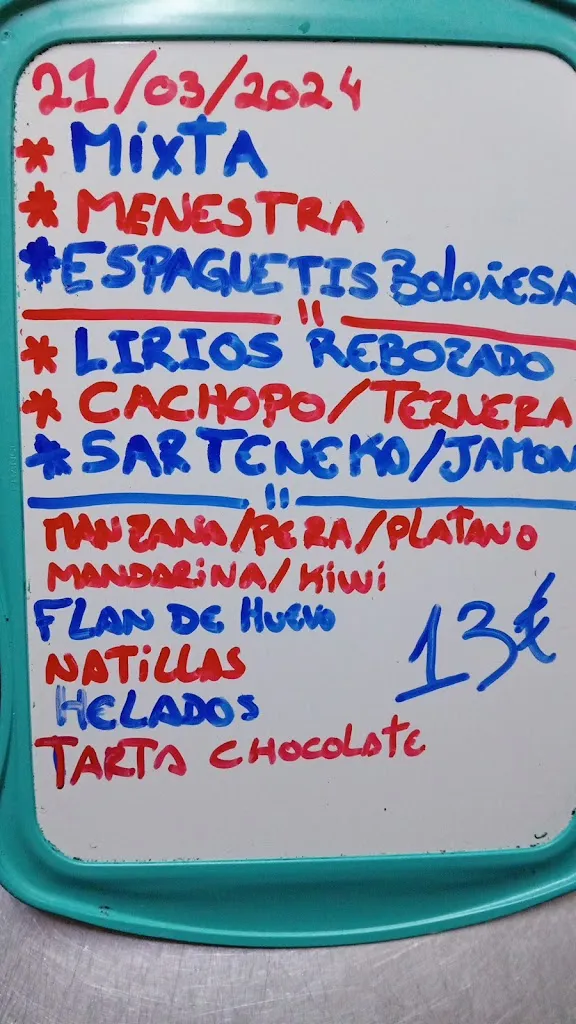 21/03/2024
* MixTA
* MENESTRA
* ESPAGUETIS BoloñESA
"
* LIRIOS REBOZADO
* CACHOPO/TERNERA
* SARTENEKO/JAMON
"
MANZANA/PERA/PLATANO
MANDARiNA/KiWi
FLAN DE HuEVO
NATiLLAS
HELADOS
13€
TARTA CHOCOLAtE